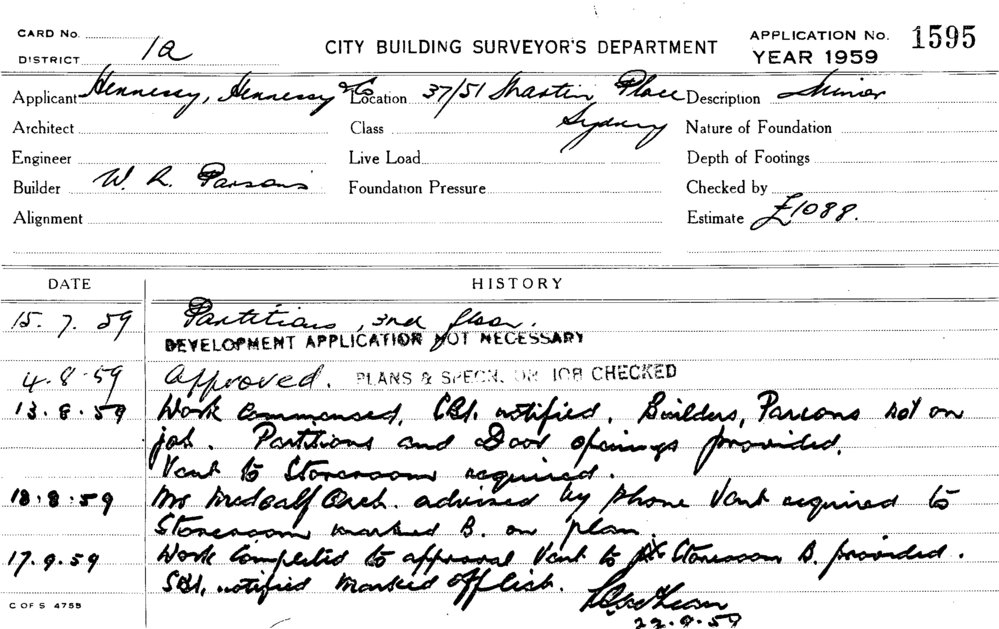 CARD No.
DISTRICT 1a
CITY BUILDING SURVEYOR'S DEPARTMENT
APPLICATION No. 1595
YEAR 1959
Applicant Hennessy, Hennessy & Co Location 37/51 Martin Place Description Minor
Architect Class Sydney Nature of Foundation
Engineer Live Load Depth of Footings
Builder W. R. Parsons Foundation Pressure Checked by
Alignment Estimate £1088.
DATE HISTORY
15.7.59 Partitions, 3rd floor.
DEVELOPMENT APPLICATION NOT NECESSARY
4.8.59 Approved. PLANS & SPECN. ON JOB CHECKED
13.8.59 Work commenced, notified, Builders, Parsons not on
job. Partitions and Door openings provided.
Vent to Storeroom required.
18.8.59 Mr Medcalf Arch. advised by phone Vent required to
Storeroom marked B. on plan
17.9.59 Work Completed to approval Vent to Storeroom B. provided.
notified marked off list.
22.9.59
C OF S 4755